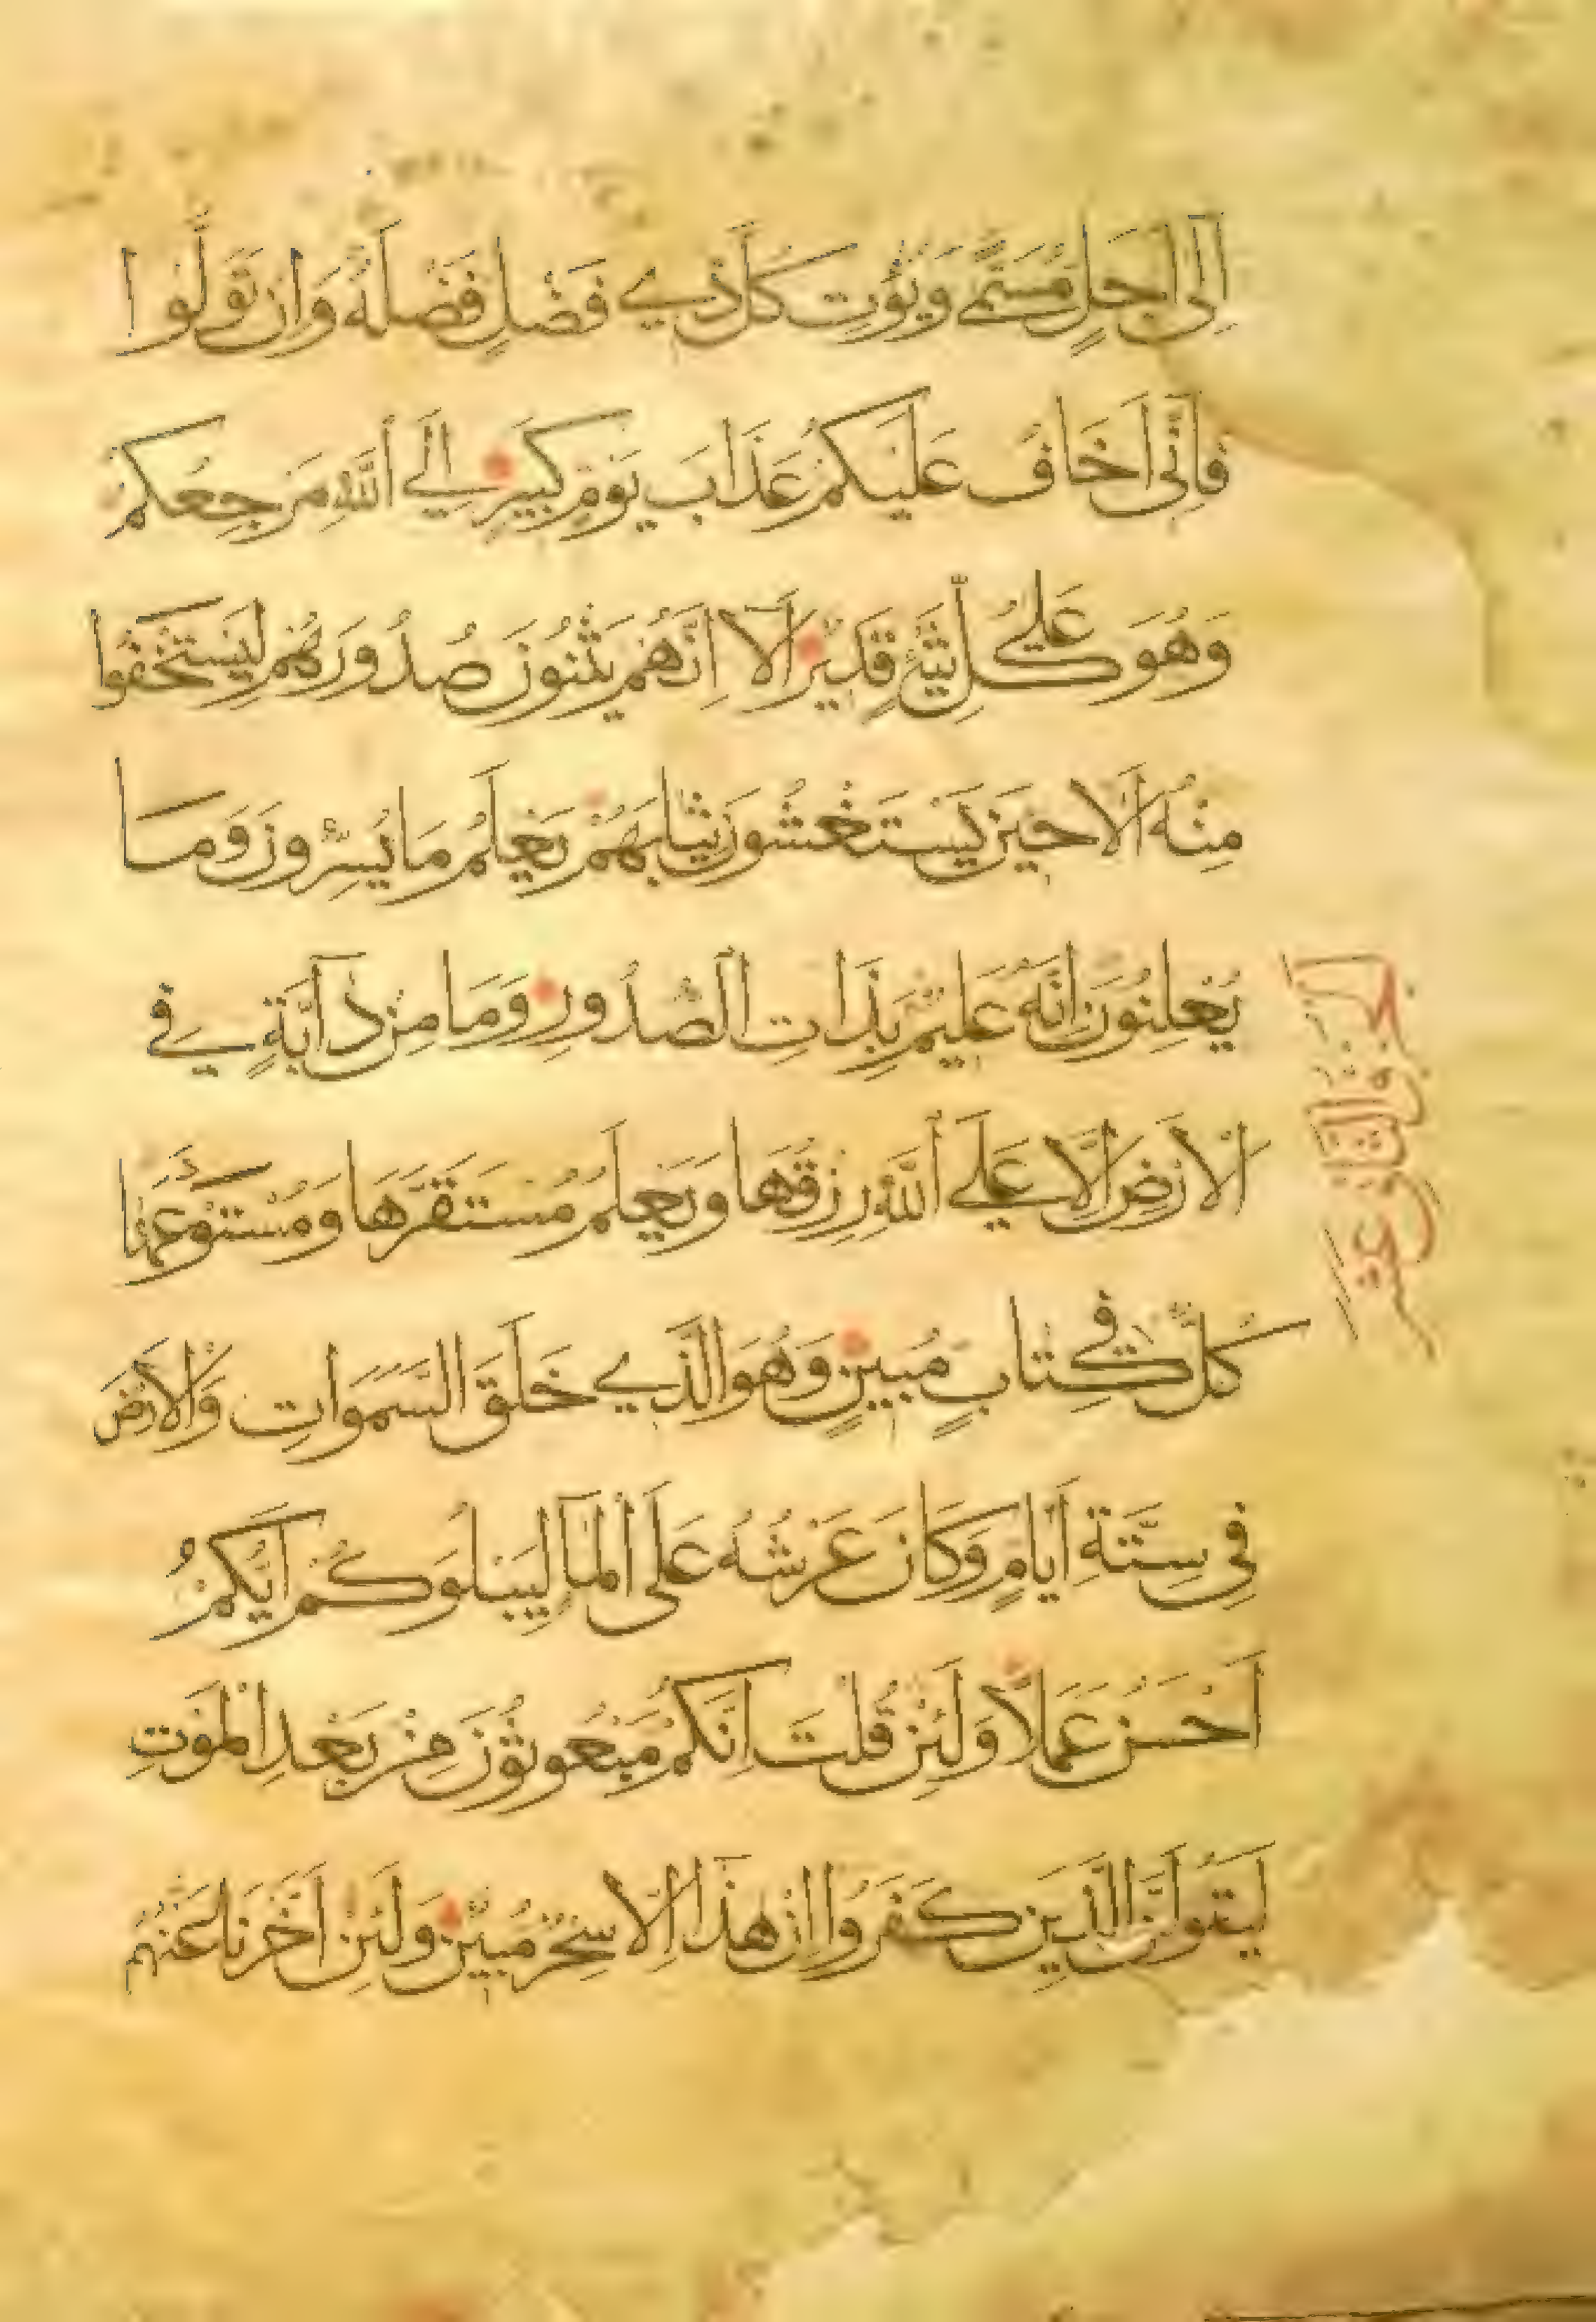 اِلٰى اَجَلٍ مُسَمًّى وَيُؤْتِ كُلَّ ذِي فَضْلٍ فَضْلَهُ وَاِنْ تَوَلَّوْا
فَاِنِّى اَخَافُ عَلَيْكُمْ عَذَابَ يَوْمٍ كَبِيرٍ اِلَى اللّٰهِ مَرْجِعُكُمْ
وَهُوَ عَلٰى كُلِّ شَيْءٍ قَدِيْرٌ اَلَآ اِنَّهُمْ يَثْنُوْنَ صُدُوْرَهُمْ لِيَسْتَخْفُوا
مِنْهُ اَلَا حِيْنَ يَسْتَغْشُوْنَ ثِيَابَهُمْ يَعْلَمُ مَا يُسِرُّوْنَ وَمَا
يُعْلِنُوْنَ اِنَّهُ عَلِيْمٌ بِذَاتِ الصُّدُوْرِ وَمَا مِنْ دَآبَّةٍ فِي
الْاَرْضِ اِلَّا عَلَى اللّٰهِ رِزْقُهَا وَيَعْلَمُ مُسْتَقَرَّهَا وَمُسْتَوْدَعَهَا
كُلٌّ فِي كِتَابٍ مُبِيْنٍ وَهُوَ الَّذِي خَلَقَ السَّمَوَاتِ وَالْاَرْضَ
فِي سِتَّةِ اَيَّامٍ وَكَانَ عَرْشُهُ عَلَى الْمَآ لِيَبْلُوَكُمْ اَيُّكُمْ
اَحْسَنُ عَمَلًا وَلَئِنْ قُلْتَ اِنَّكُمْ مَبْعُوْثُوْنَ مِنْ بَعْدِ الْمَوْتِ
لَيَقُوْلَنَّ الَّذِيْنَ كَفَرُوْا اِنْ هٰذَا اِلَّا سِحْرٌ مُبِيْنٌ وَلَئِنْ اَخَّرْنَا عَنْهُمُ
الجزو الثاني عشر